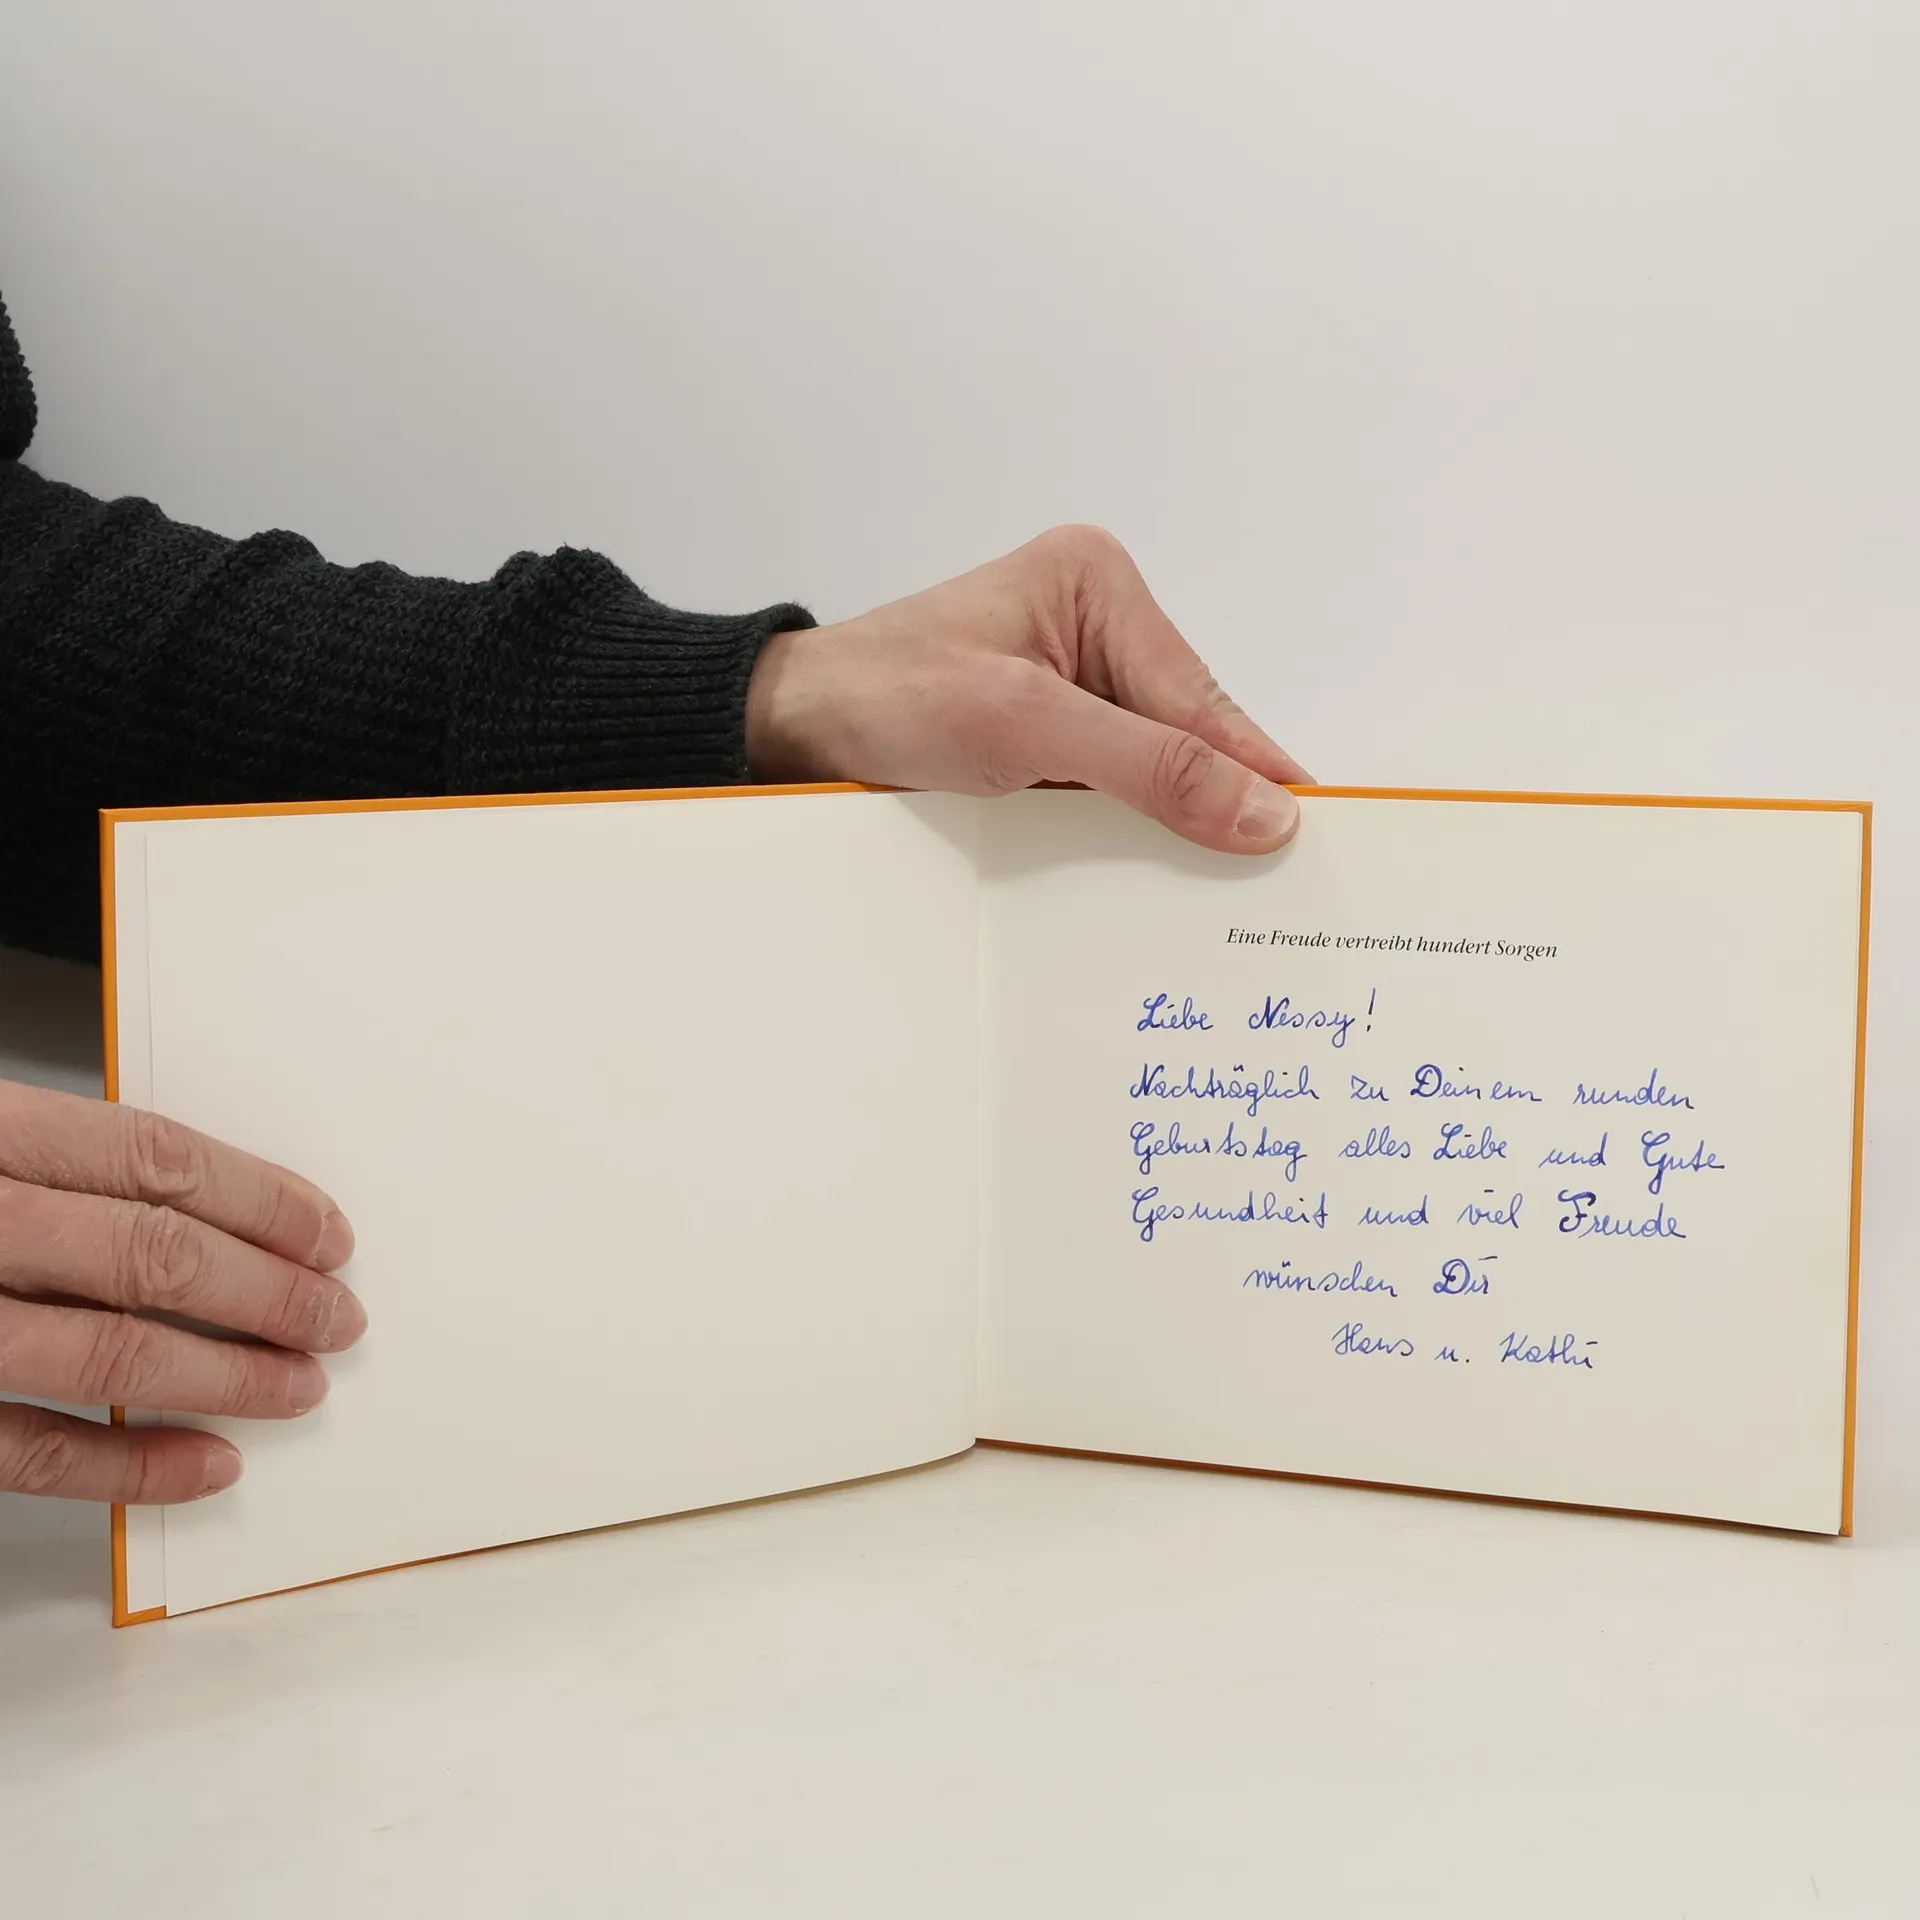 Eine Freude vertreibt hundert Sorgen
Liebe Nessy!
Nachträglich zu Deinem runden
Geburtstag alles Liebe und Gute
Gesundheit und viel Freude
wünschen Dir
Hans u. Kathi